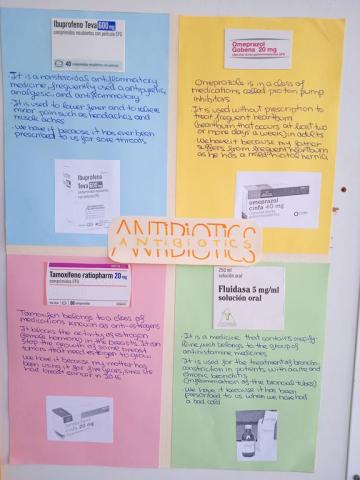 Ibuprofeno Teva 600 mg
comprimidos recubiertos con película EFG
40 comprimidos recubiertos con película
It is a nonsteroidal antiinflammatory
medicine, frequently used a antipyretic,
analgesic, and antiinflammatory
It is used to lower fever and to relieve
minor pain such as headaches, and
muscle aches
We have it because it has ever been
prescribed to us for sore throats
Ibuprofeno
Teva 600 mg
Omeprazol
Gabens 20 mg
Omeprazole is in a class of
medications called proton pump
inhibitors
It is used without prescription to
treat frequent heartburn
(heartburn that occurs at least two
or more days a week) in adults
We have it because my father
suffers from frequent heartburn
as he has a hernia
omeprazol
cinfa 40 mg
ANTIBIOTICS
ANTIBIOTICS
Tamoxifeno ratiopharm 20 mg
comprimidos EFG
Tamoxifen belongs to a class of
medications known as anti-estrogens
It blocks the activity of estrogen
(female hormone) in the breasts. It can
stop the growth of some breast
tumors that need estrogen to grow
We have it because my mother has
been using it for five years, since she
had breast cancer in
cinfa 20 mg
250 ml
solución oral
Fluidasa 5 mg/ml
solución oral
It is a medicine that contains
which belongs to the group of
antihistamine medicines.
It is used for the treatment of broncho-
constriction in patients with acute and
chronic bronchitis
(inflammation of the bronchial tubes)
We have it because it has been
prescribed to us when we have had
a bad cold